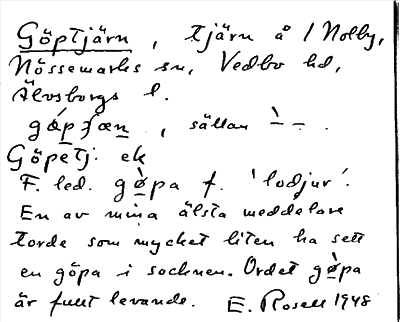 Göptjärn, tjärn å 1 Nolby,
Nössemarks sn, Vedbo hd,
Älvsborgs l.
, sällan ` – .
Göpetj. ek
F. led. gö̀pa f. 'lodjur'.
En av mina älsta meddelare
torde som mycket liten ha sett
en göpa i socknen. Ordet gö̀pa
är fullt levande. E. Rosell 1948